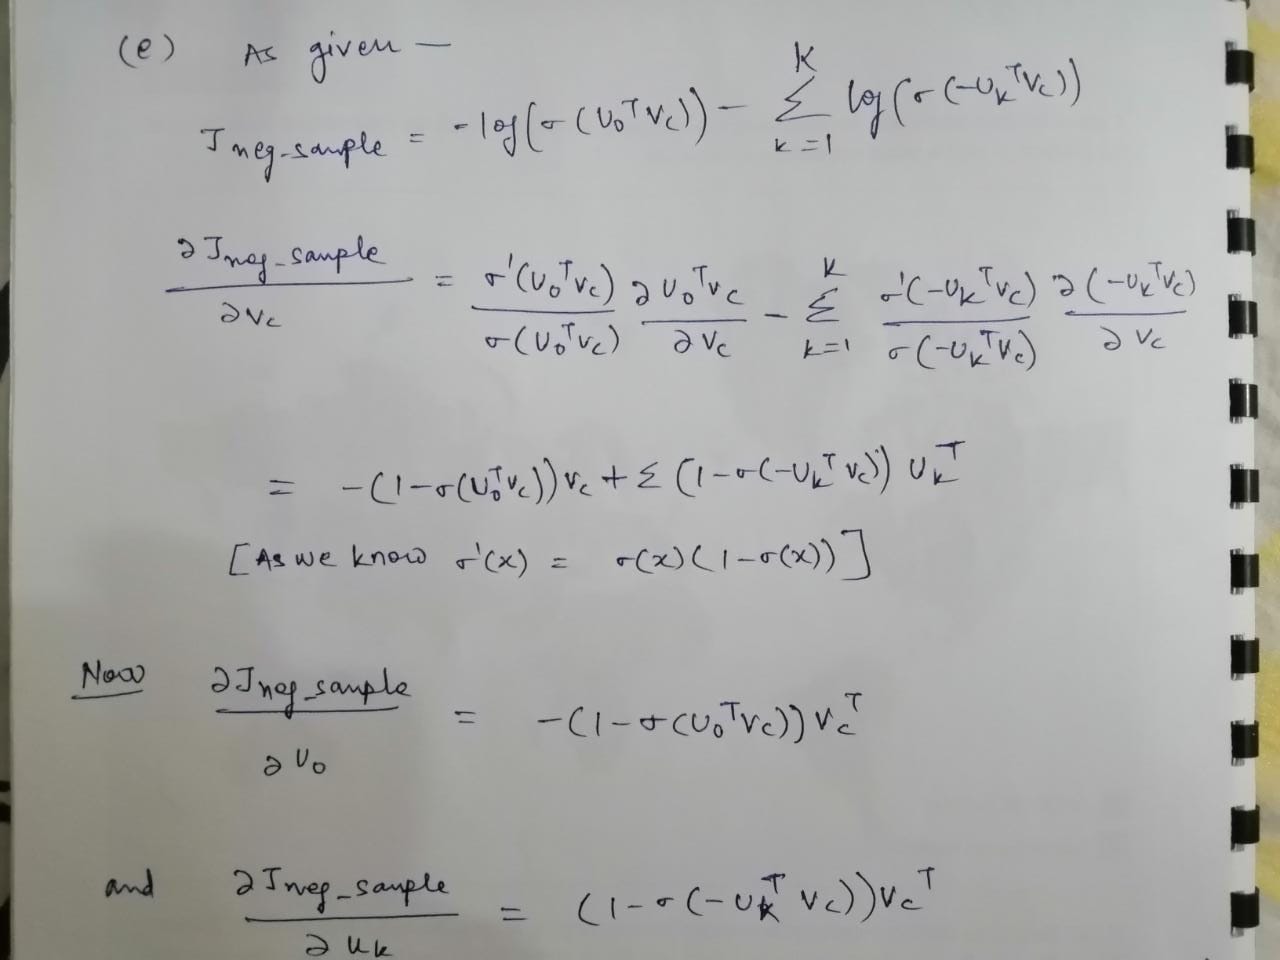 (e) As given —
J_neg_sample = -log(σ(U_o^T V_c)) - Σ_{k=1}^{K} log(σ(-U_k^T V_c))
∂J_neg_sample/∂V_c = σ'(U_o^T V_c)/σ(U_o^T V_c) ∂U_o^T V_c/∂V_c - Σ_{k=1}^{K} σ'(-U_k^T V_c)/σ(-U_k^T V_c) ∂(-U_k^T V_c)/∂V_c
= -(1-σ(U_o^T V_c)) V_c + Σ (1-σ(-U_k^T V_c)) U_k^T
[As we know σ'(x) = σ(x)(1-σ(x))]
Now ∂J_neg_sample/∂U_o = -(1-σ(U_o^T V_c)) V_c^T
and ∂J_neg_sample/∂U_k = (1-σ(-U_k^T V_c)) V_c^T